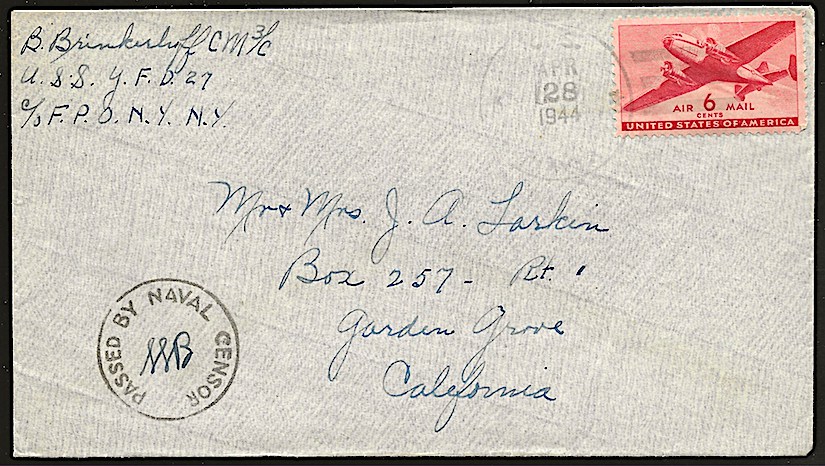 B. Brinkerhoff CM3/C
U.S.S. Y.F.D. 27
c/o F.P.O. N.Y. N.Y.
APR
28
1944
AIR 6 MAIL
CENTS
UNITED STATES OF AMERICA
Mr & Mrs. J. A. Larkin
Box 257 - Rt. 1
Garden Grove
California
PASSED BY NAVAL CENSOR